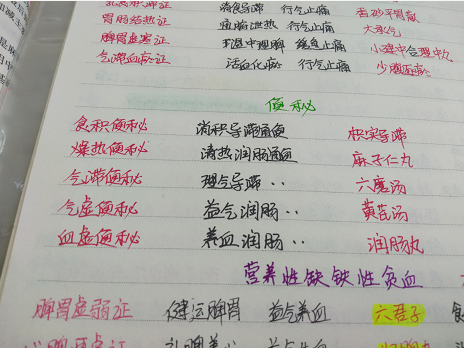 消食导滞 行气止痛 香砂平胃散
胃肠结热证 通腑泄热 行气止痛 大承气
脾胃虚寒证 温中理脾 缓急止痛 小建中合理中丸
气滞血瘀证 活血化瘀 行气止痛 少腹逐瘀
便秘
食积便秘 消积导滞通便 枳实导滞
燥热便秘 清热润肠通便 麻子仁丸
气滞便秘 理气导滞 〃 六磨汤
气虚便秘 益气润肠 〃 黄芪汤
血虚便秘 养血润肠 〃 润肠丸
营养性缺铁性贫血
脾胃虚弱证 健运脾胃 益气养血 六君子